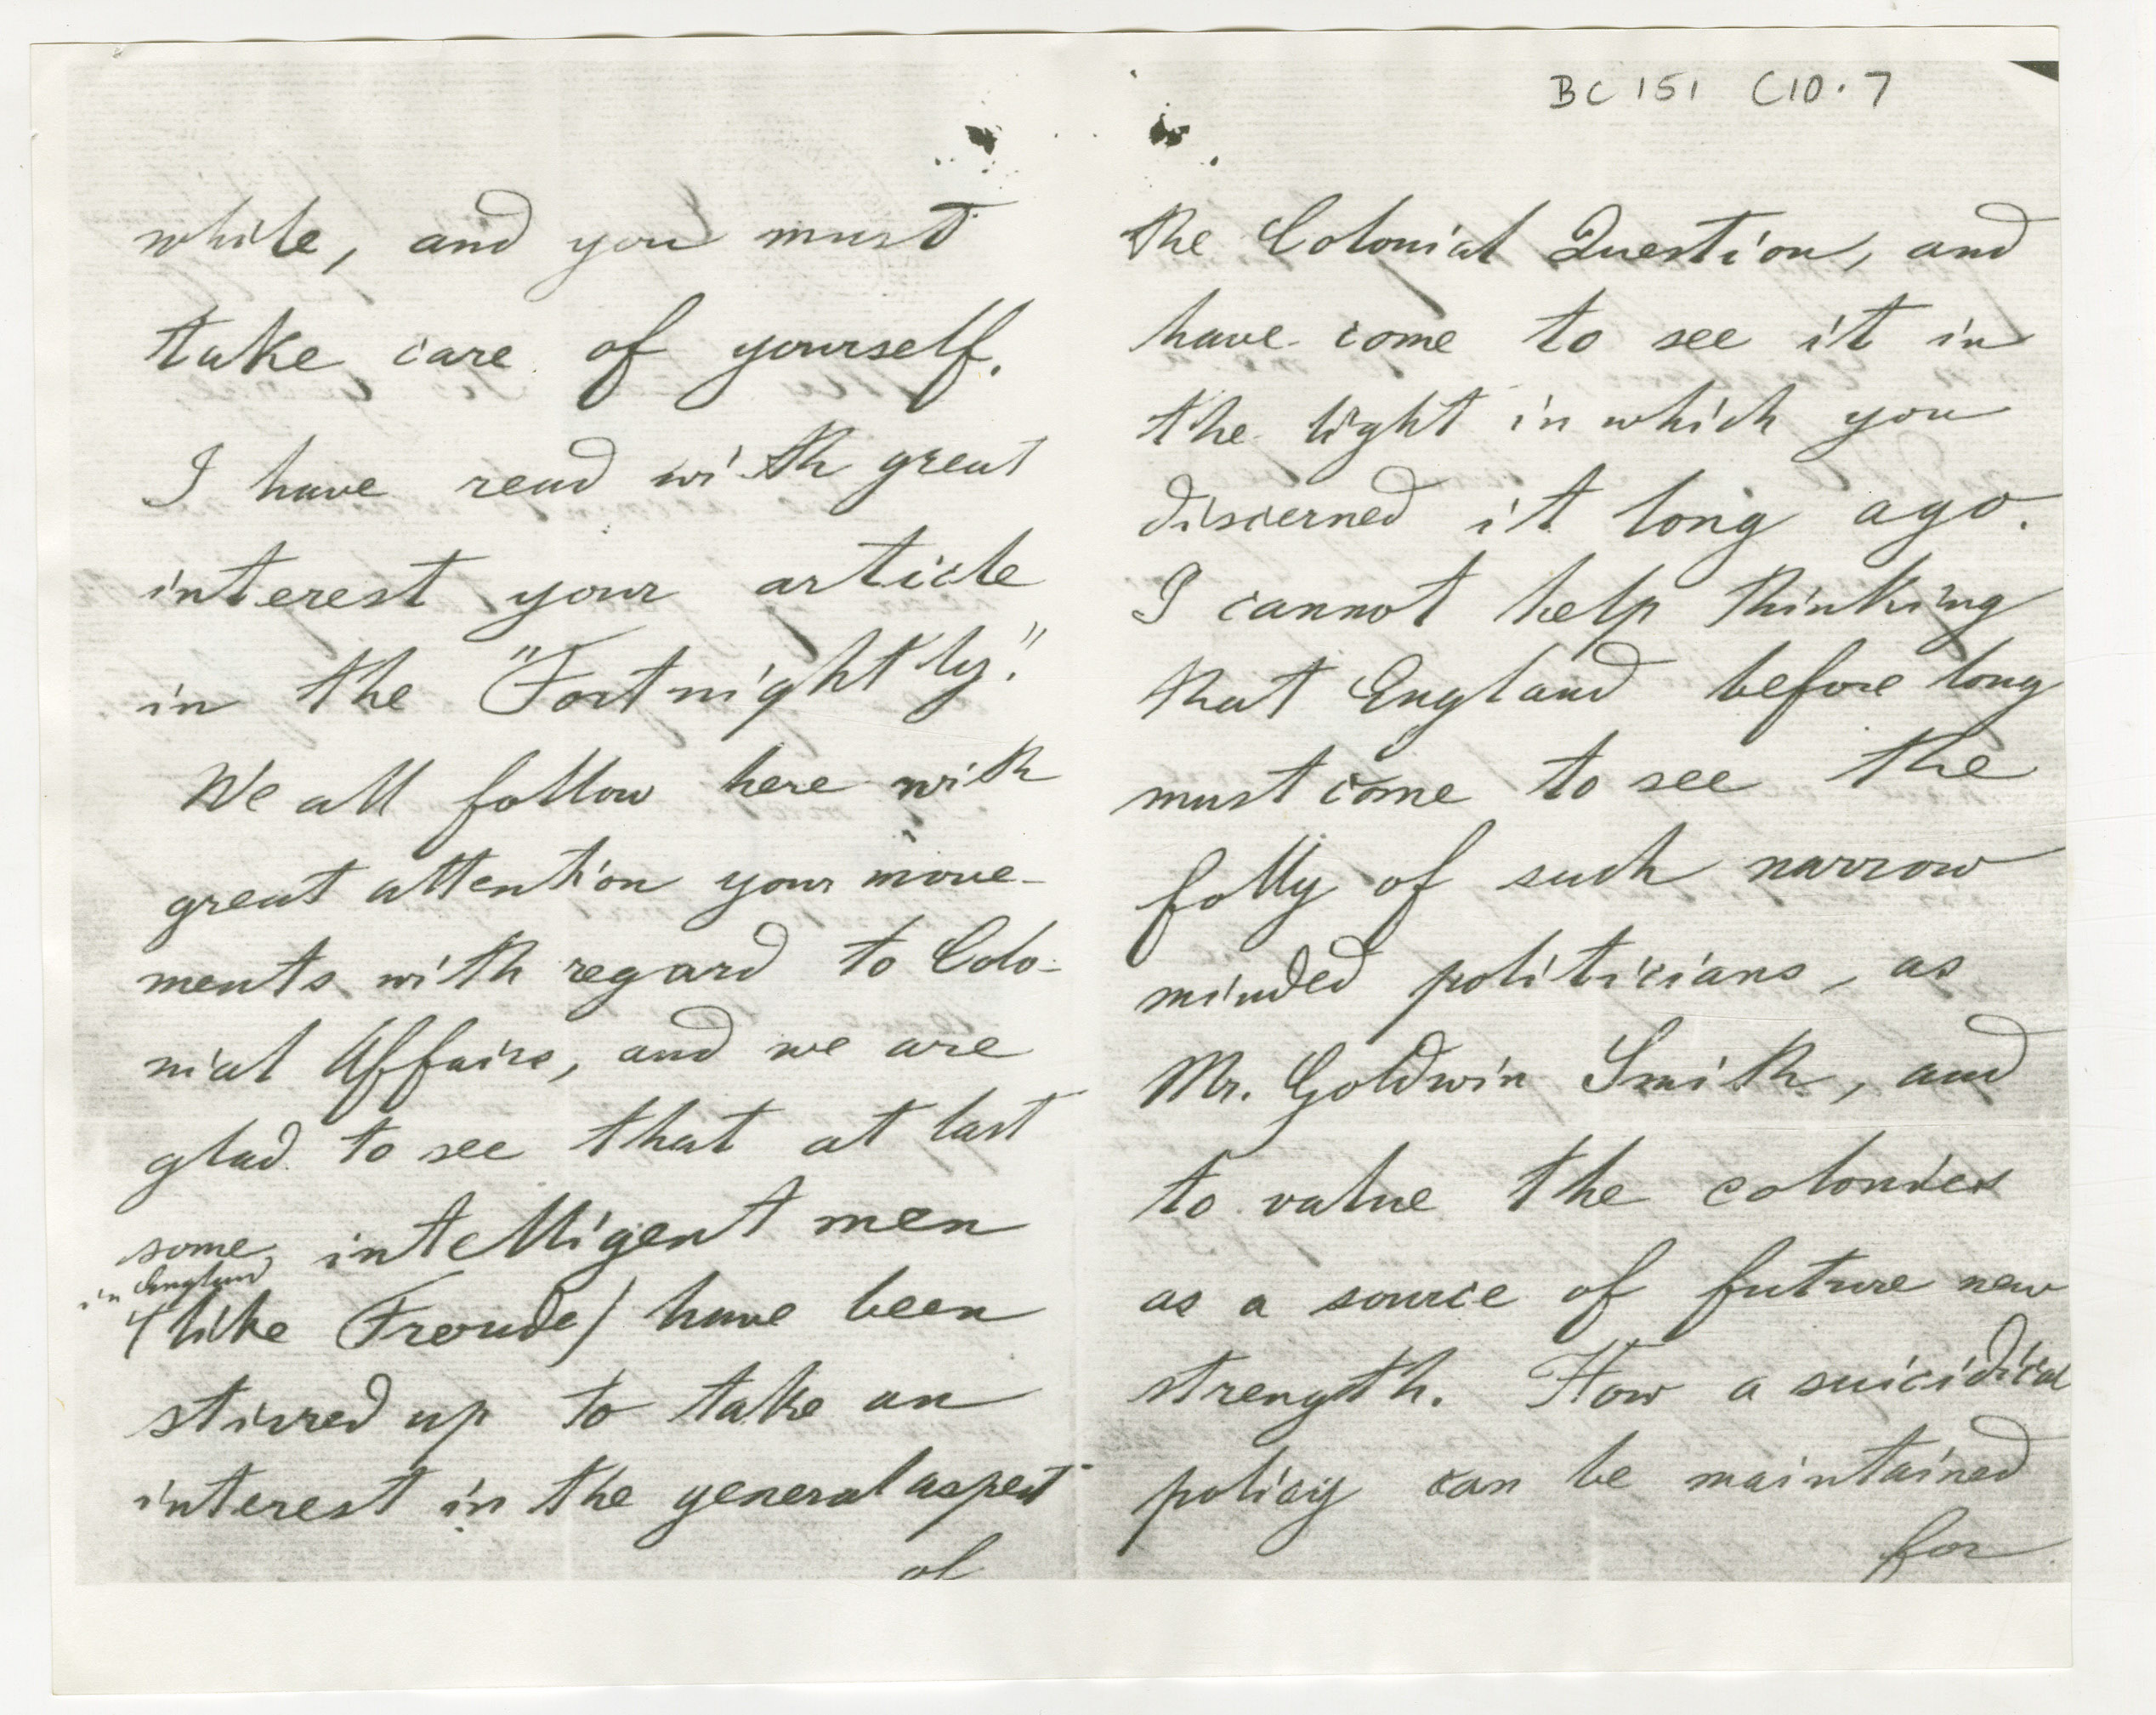 BC 151 C10.7
while, and you must
take care of yourself.
I have read with great
interest your article
in the "Fortnightly".
We all follow here with
great attention your move-
ments with regard to Colo-
nial Affairs, and we are
glad to see that at last
some intelligent men
in England
(like Froude) have been
stirred up to take an
interest in the general aspect
of
the Colonial Question, and
have come to see it in
the light in which you
discerned it long ago.
I cannot help thinking
that England before long
must come to see the
folly of such narrow
minded politicians, as
Mr. Goldwin Smith, and
to value the colonies
as a source of future new
strength. How a suicidical
policy can be maintained
for